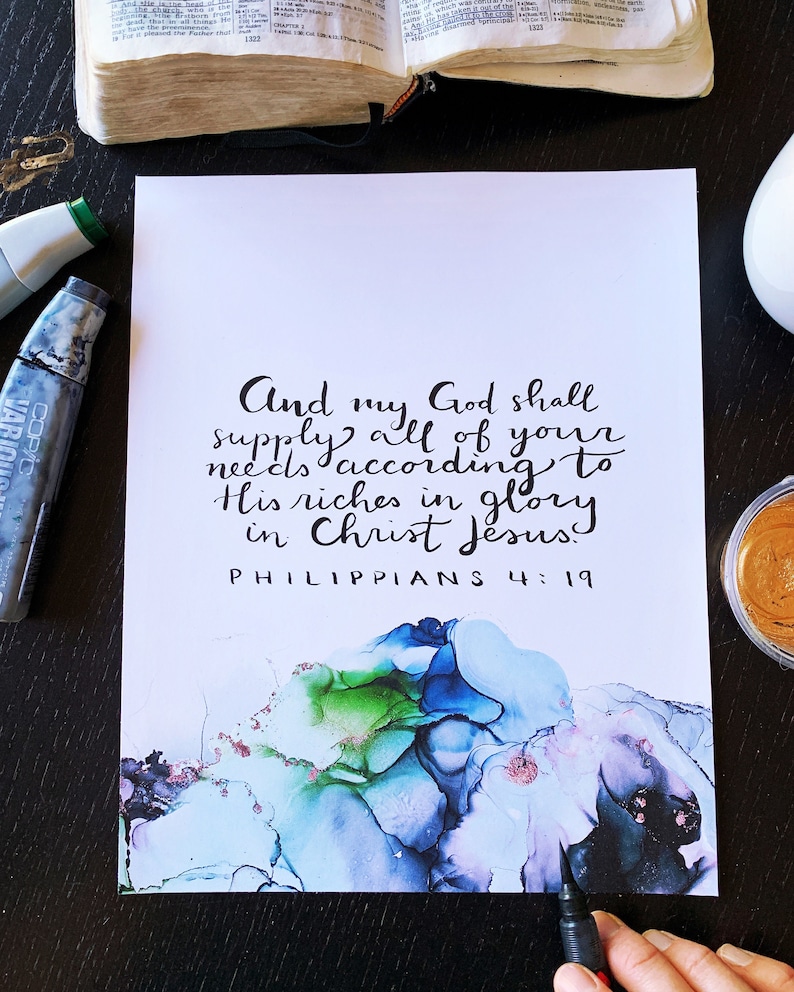 And He is the head of
the church, who is the
beginning, the firstborn from
the dead, that in all things He
may have the preeminence.
19 For it pleased the Father that
1322
CHAPTER 2
having nailed it to the cross.
Having disarmed principal-
1323
COPIC
VARIOUS
And my God shall
supply all of your
needs according to
His riches in glory
in Christ Jesus.
PHILIPPIANS 4:19